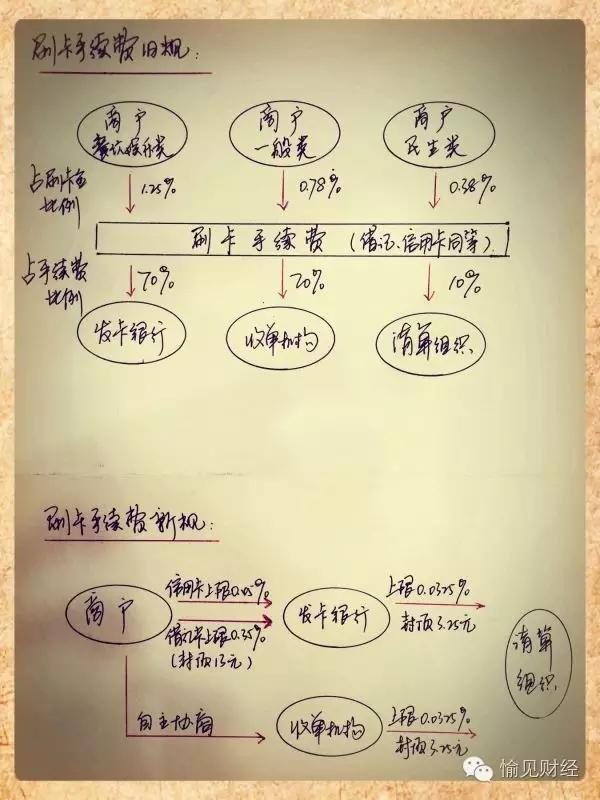 刷卡手续费旧规：
商户
餐饮娱乐类
商户
一般类
商户
民生类
占刷卡金
比例
1.25%
0.78%
0.38%
刷卡手续费（借记、信用卡同等）
占手续费
比例
70%
20%
10%
发卡银行
收单机构
清算组织
刷卡手续费新规：
商户
信用卡上限0.45%
借记卡上限0.35%
（封顶13元）
发卡银行
上限0.0325%
封顶3.25元
清算
组织
自主协商
收单机构
上限0.0325%
封顶3.25元
愉见财经